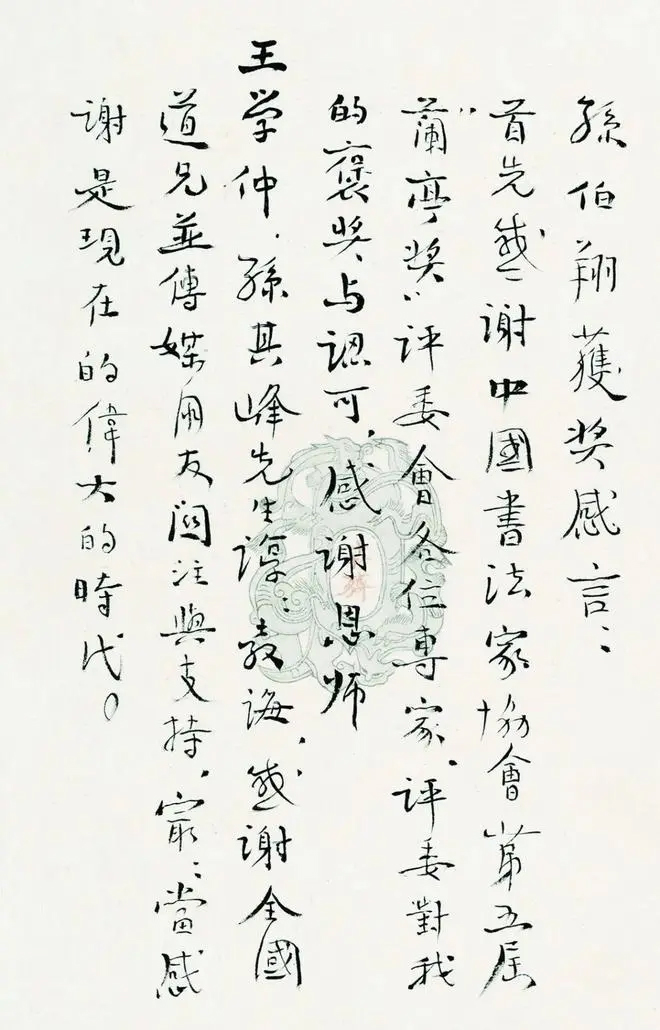 孫伯翔獲奖感言：
首先感謝中國書法家協會苐五届
“蘭亭奖”评委會各位專家、评委對我
的褒奖与認可，感謝恩师
王学仲、孫其峰先生諄：教诲，感謝全國
道兄並傳媒朋友関注與支持，最：當感
謝是現在的偉大的時代。